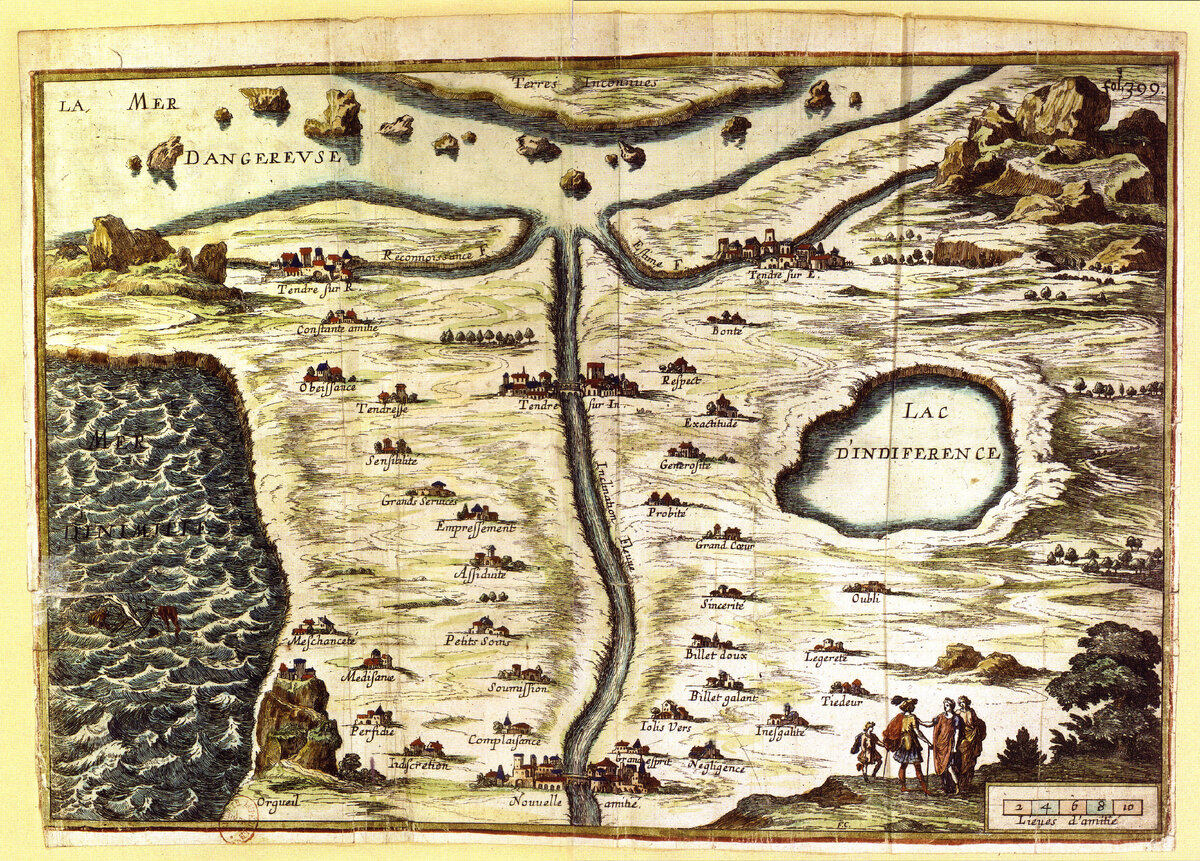 Terres Inconnues
fol. 399.
LA, MER
DANGEREVSE
Reconnoissance F
Estime F
Tendre sur R
Tendre sur E
Constante amitie
Bonte
Obeissance
Respect
Tendresse
Tendre sur In
Exactitude
LAC
D'INDIFERENCE
MER
D'INIMITIE
Sensibilite
Generosite
Grands Services
Inclination Fleuve
Probite
Empressement
Grand Cœur
Assiduite
Sincerite
Oubli
Meschancete
Petits Soins
Billet doux
Legerete
Medisance
Soumission
Billet galant
Tiedeur
Perfidie
Complaisance
Iolis Vers
Inesgalite
Indiscretion
Grand esprit
Negligence
Orgueil
Nouvelle amitie.
2 4 6 8 10
Lieues d'amitie